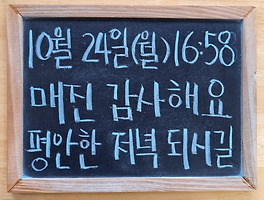 10월 24일(월)16:58
매진 감사해요
평안한 저녁 되시길